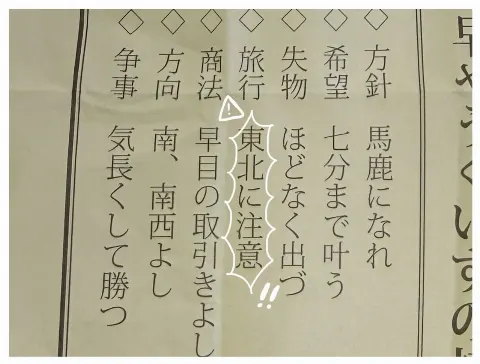 ◇方針 馬鹿になれ
◇希望 七分まで叶う
◇失物 ほどなく出づ
◇旅行 東北に注意!!
◇商法 早目の取引きよし
◇方向 南、南西よし
◇争事 気長くして勝つ